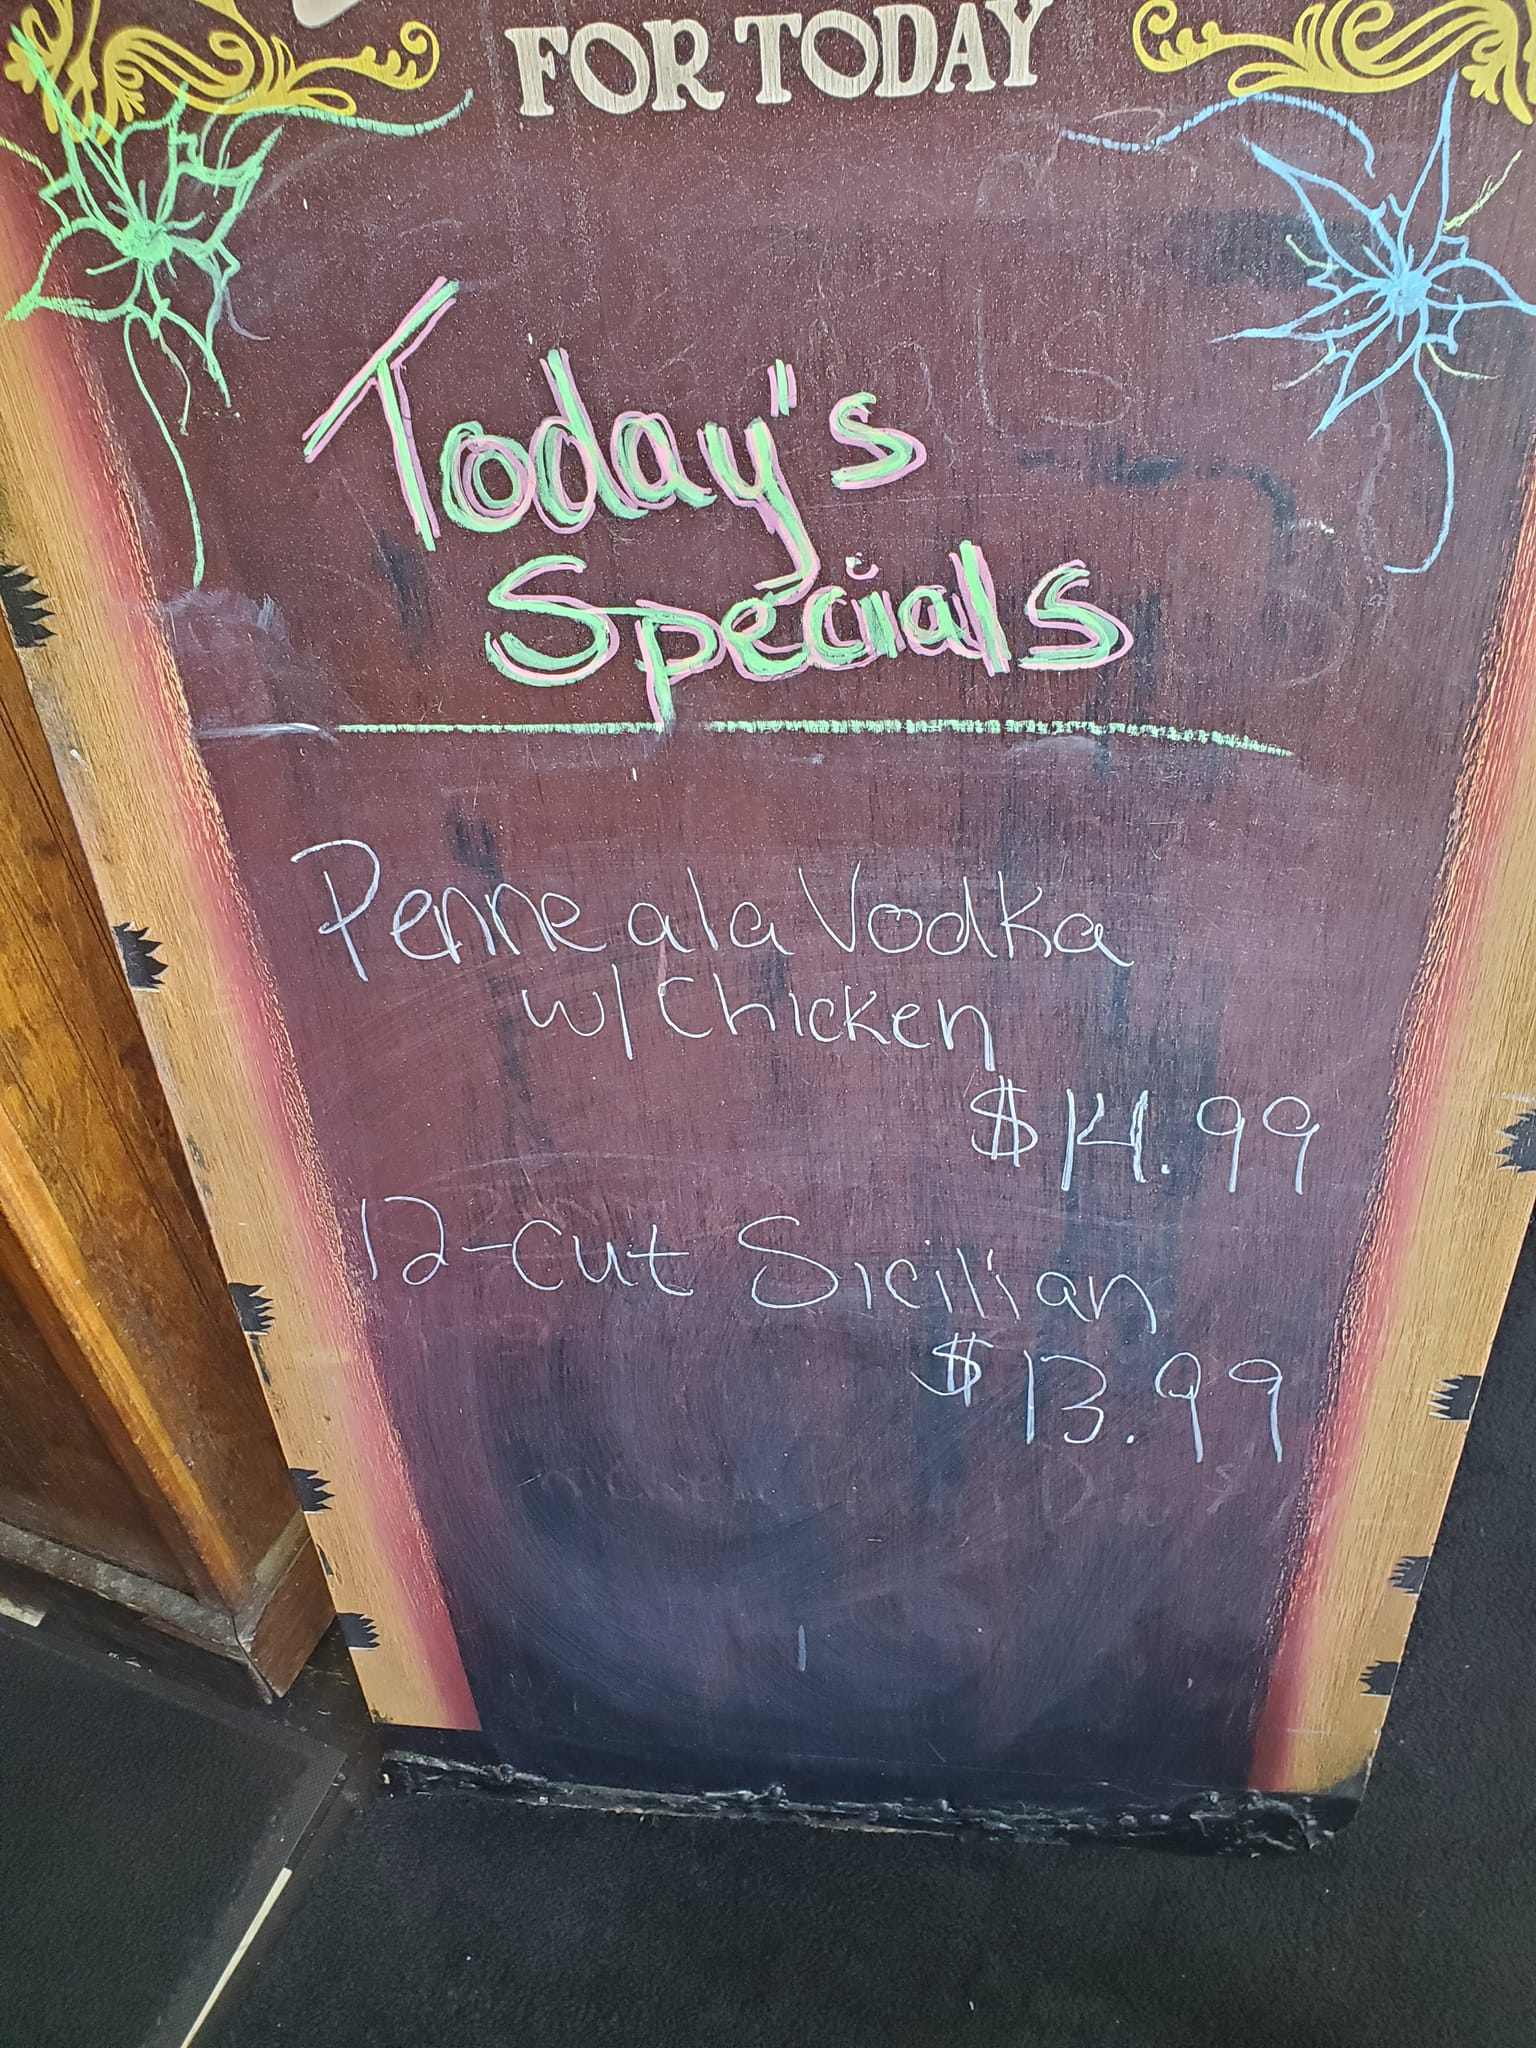 FOR TODAY
Today's
Specials
Penne ala Vodka
w/ Chicken
$14.99
12-cut Sicilian
$13.99